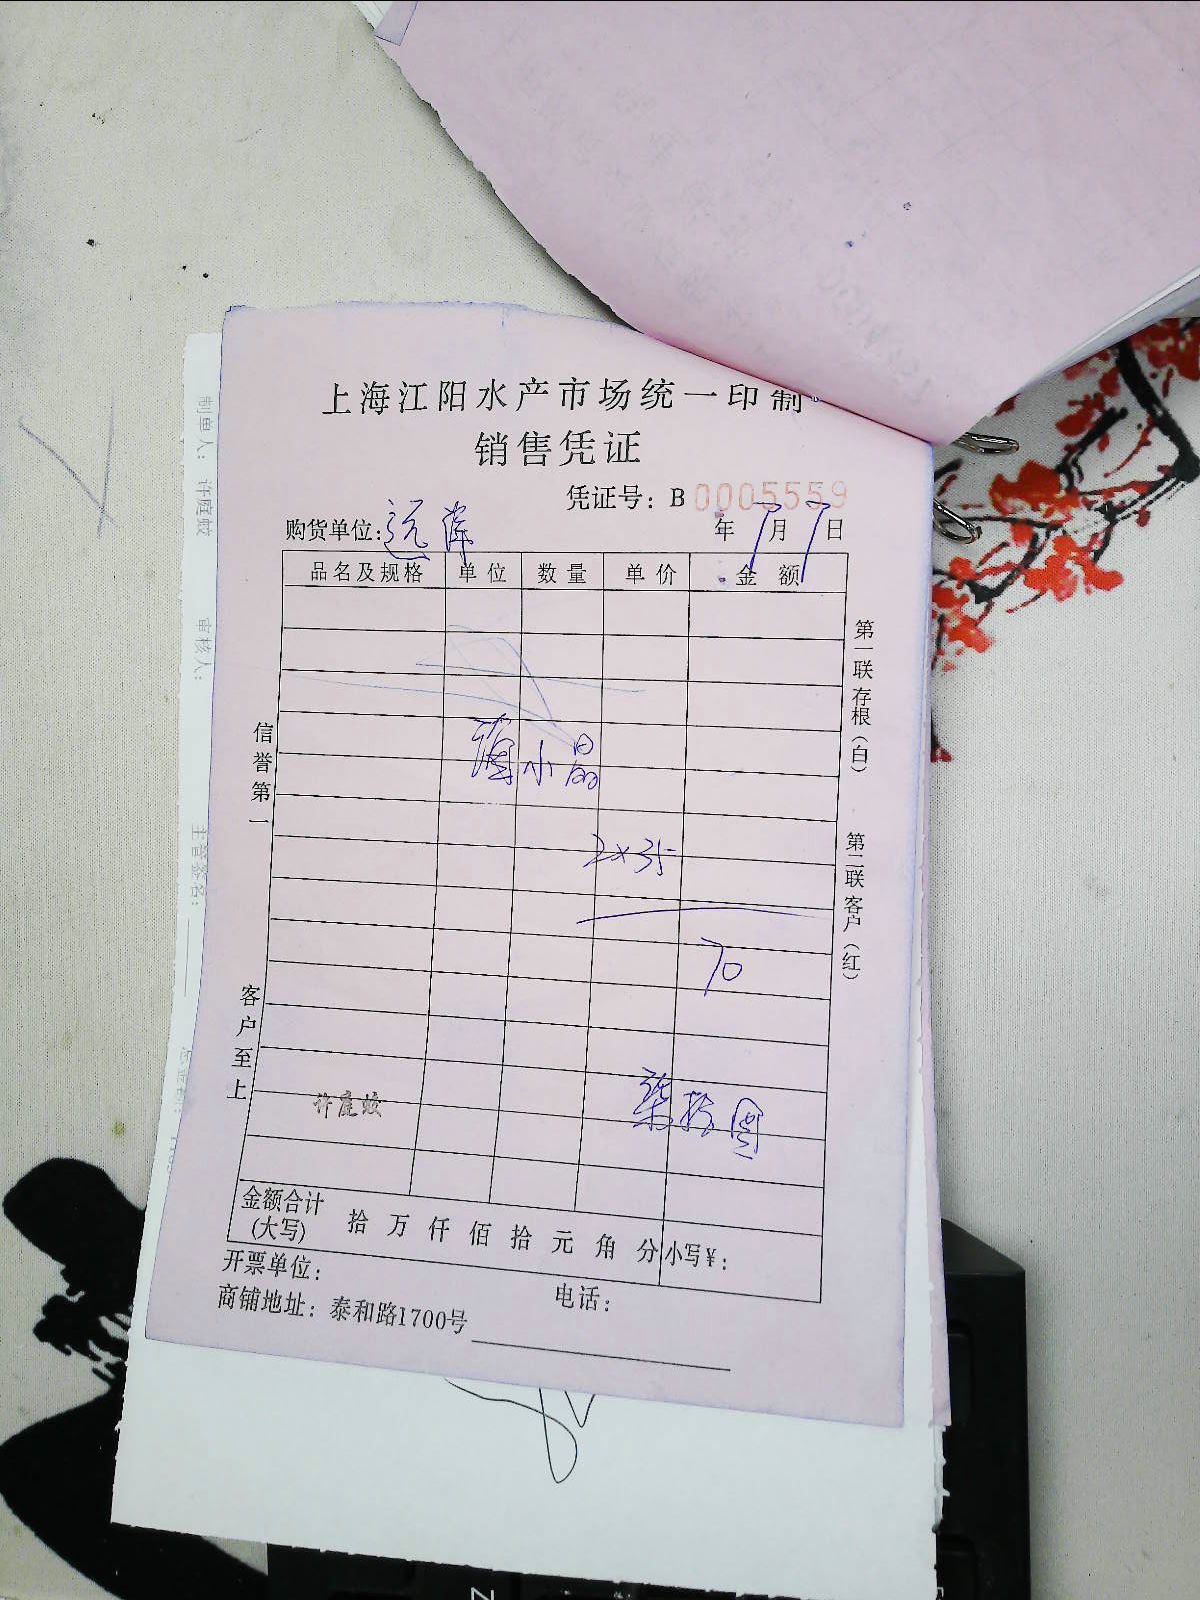 上海江阳水产市场统一印制
销售凭证
凭证号：B 0005559
购货单位: 远洋 年 7月 7日
品名及规格 单位 数量 单价 金额
小晶
2×35
70
柒拾圆
许庭蛟
金额合计(大写) 拾 万 仟 佰 拾 元 角 分 小写￥:
开票单位: 电话:
商铺地址：泰和路1700号
信誉第一
客户至上
第一联 存根(白)
第二联 客户(红)
制单人： 许庭蛟
审核人:
主管签名:
Z